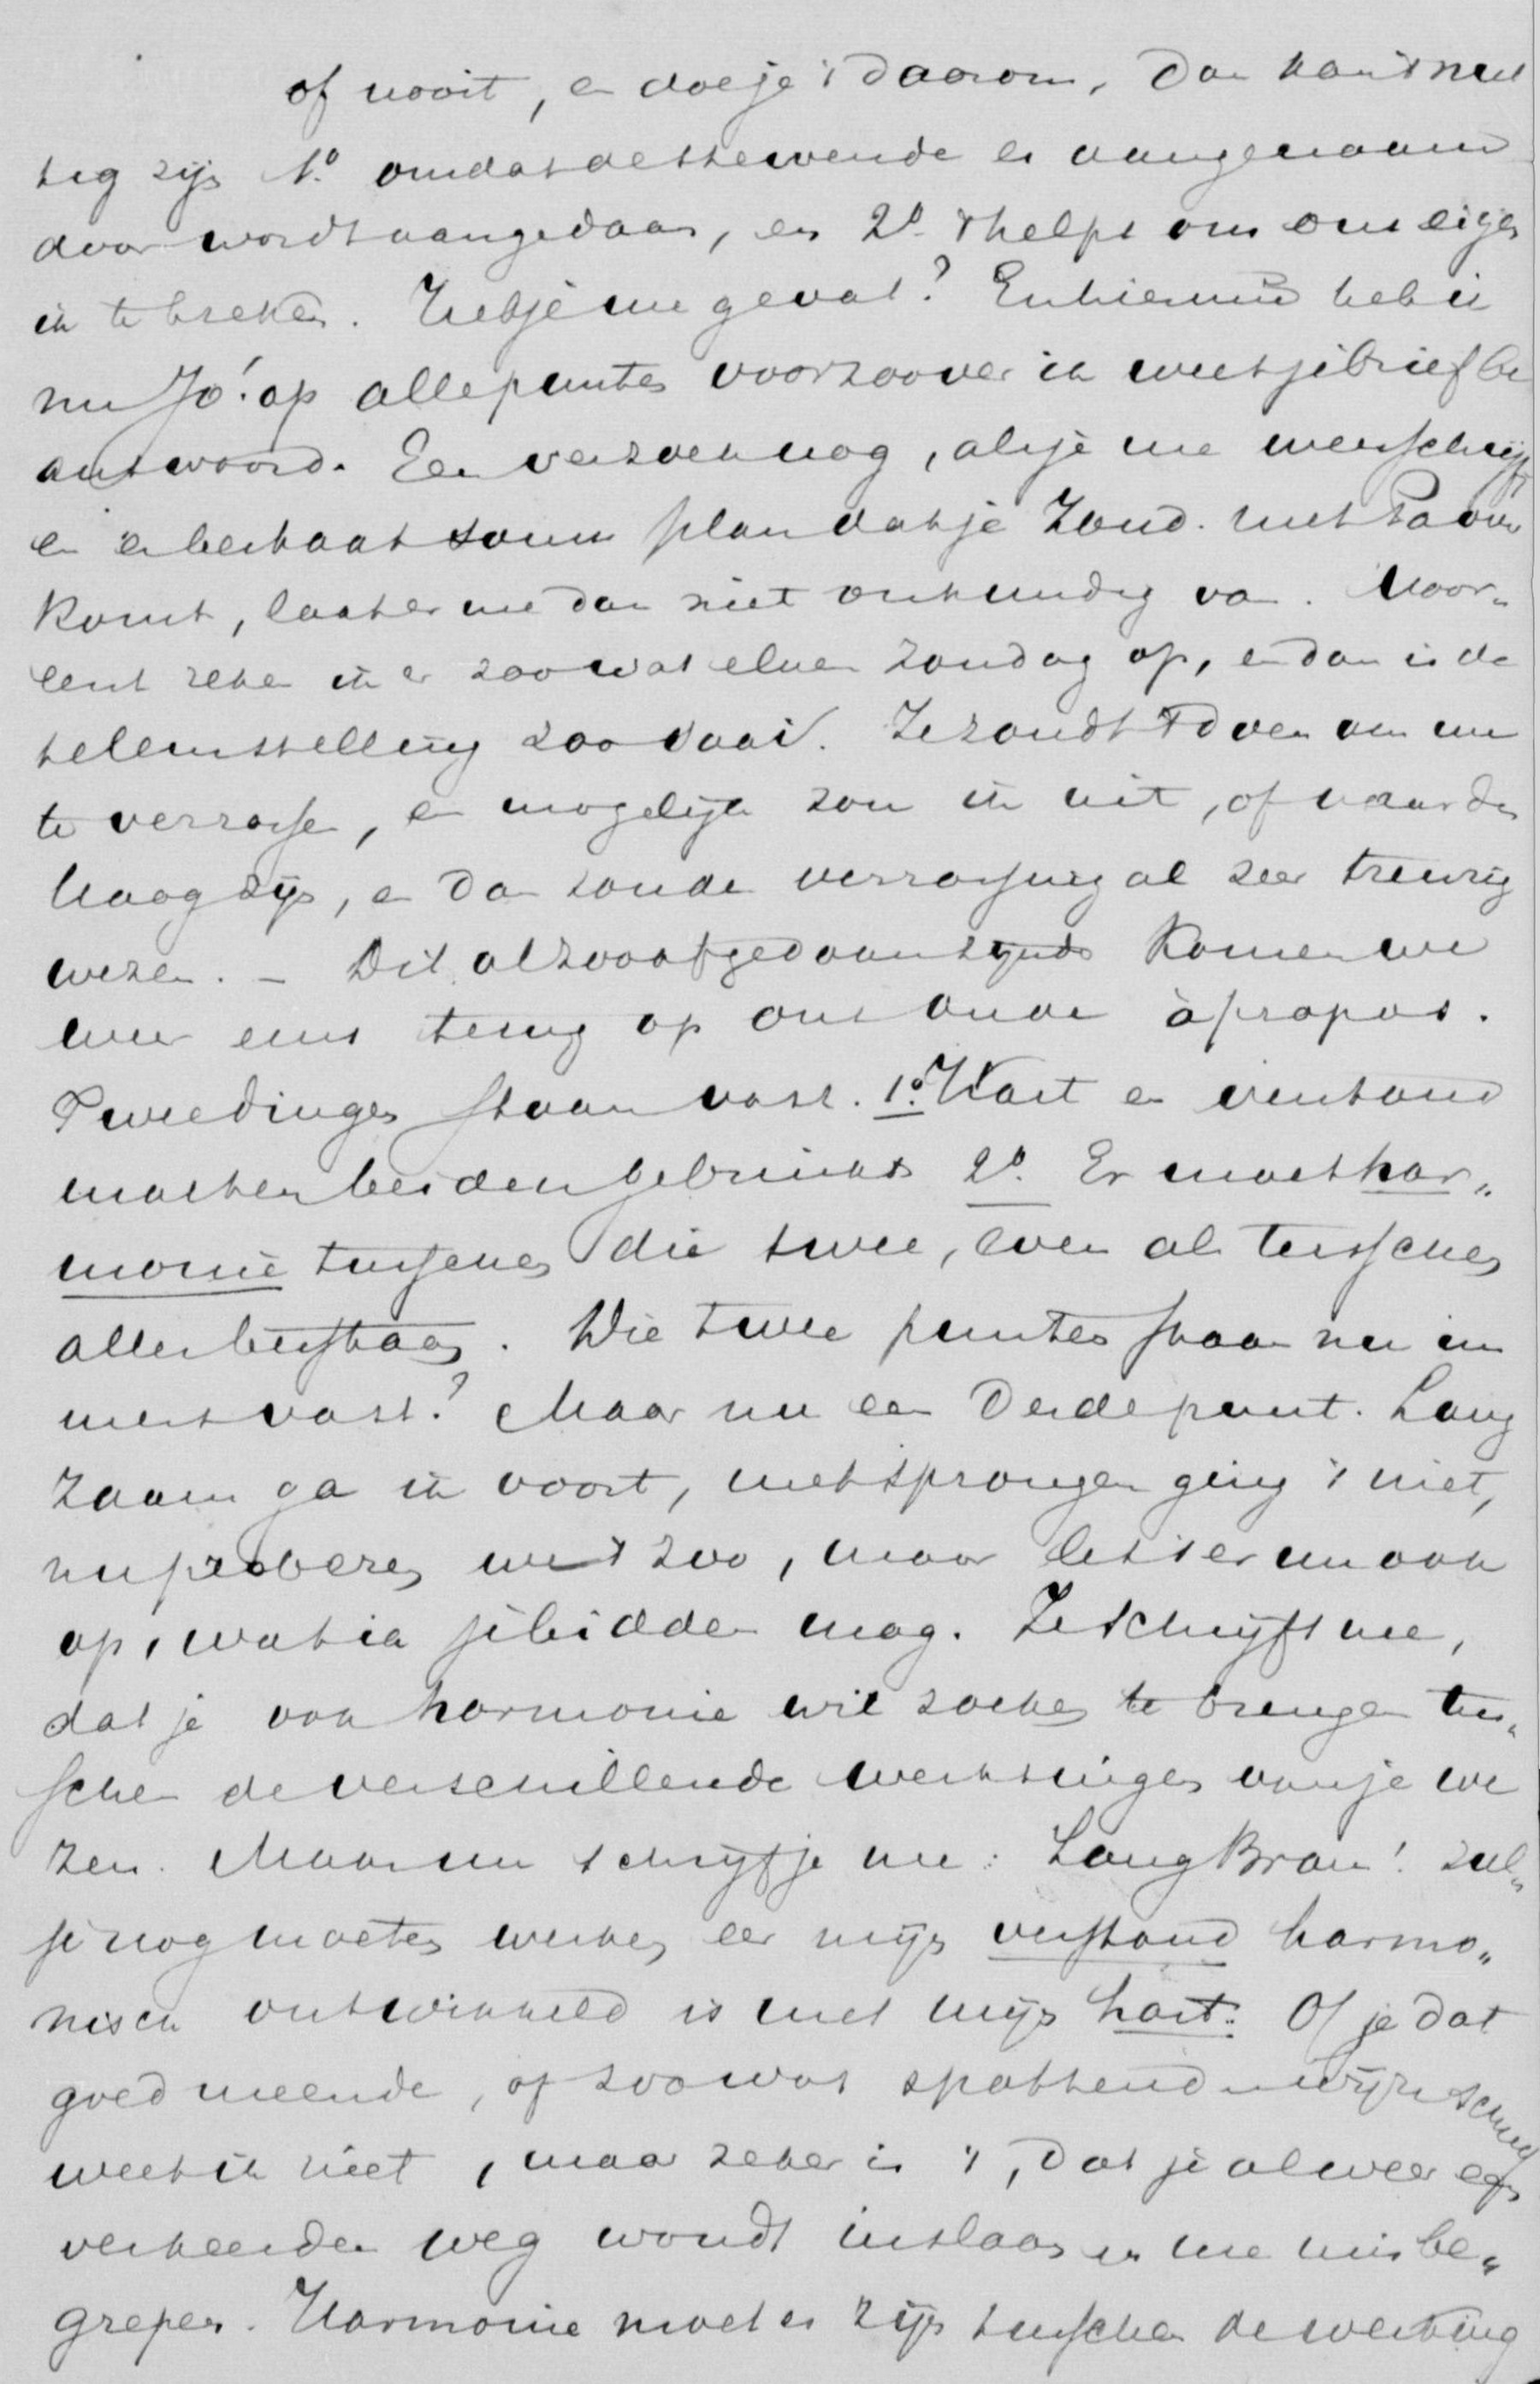 of nooit, en doe je 't daarom, dan kan 't nut
tig zijn 1º omdat de schrevende er aangenaam
door wordt aangedaan, en 2º 't helpt om ons eigen
ik te breken. Heb je me gevat? En hiermeê heb ik
nu Jo! op alle punten voorzoover ik weet je brief be
antwoord. Een verzoek nog, als je me weer schrijft
en er bestaat soms plan dat je Zond. met Pa over
komt, laat er me dan niet onkundig van. Voor„
eerst reken ik er zoowat elken Zondag op, en dan is de
teleurstelling zoo naar. Je zoudt 't doen om me
te verrassen, en mogelijk zou ik uit, of naar den
Haag zijn, en dan zou de verrassing al zeer treurig
wezen. – Dit alzoo afgedaan zijnde komen we
weer eens terug op ons oude àpropos.
Twee dingen staan vast. 1º. Hart en verstand
moeten beiden gebruikt 2º. Er moet har„
monie tusschen die twee, even als tusschen
alles bestaan. Die twee punten staan nu im
mers vast? Maar nu een derde punt. Lang
zaam ga ik voort, met sprongen ging 't niet,
nu proberen we 't zoo, maar let er nu ook
op, wat ik je bidden mag. Je schrijft me,
dat je ook harmonie wil zoeken te brengen tus„
schen de verschillende werkingen van je we
zen. Maar nu schrijf je me: Lang Bram! zul„
je nog moeten werken eer mijn verstand harmo„
nisch ontwikkeld is met mijn hart. Of je dat
goed meende, of zoowat spottenderwijze schreef
weet ik niet, maar zeker is 't, dat je alweer een
verkeerden weg woudt inslaan en me misbe„
grepen. Harmonie moet er zijn tusschen de werking